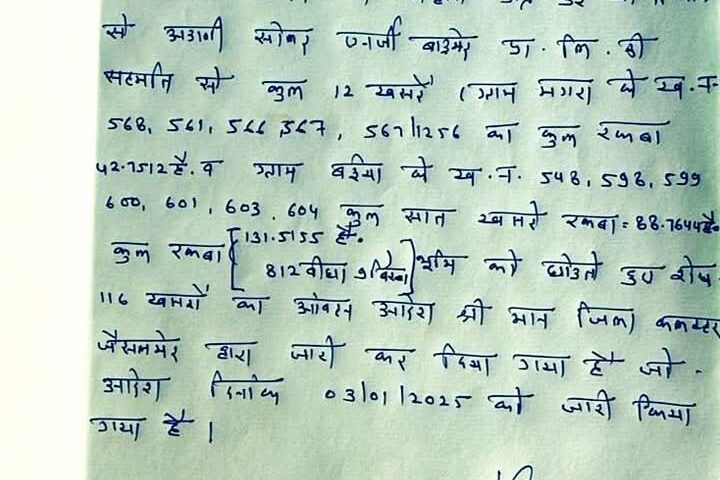 से अडानी सोलर एनर्जी बाड़मेर प्रा. लि. की
सहमति से कुल 12 खसरे (ग्राम मगरा के ख.न.
568, 561, 566, 567, 567/1256 का कुल रकबा
42.7512 है. व ग्राम बईया के ख.न. 548, 598, 599
600, 601, 603, 604 कुल सात खसरे रकबा = 88.7644 है.
कुल रकबा [131.5155 है.
812 बीघा 9 बिस्वा] भूमि को छोडते हुए शेष
116 खसरों का आवंटन आदेश श्री मान जिला कलक्टर
जैसलमेर द्वारा जारी कर दिया गया है जो.
आदेश दिनांक 03/01/2025 को जारी किया
गया है।